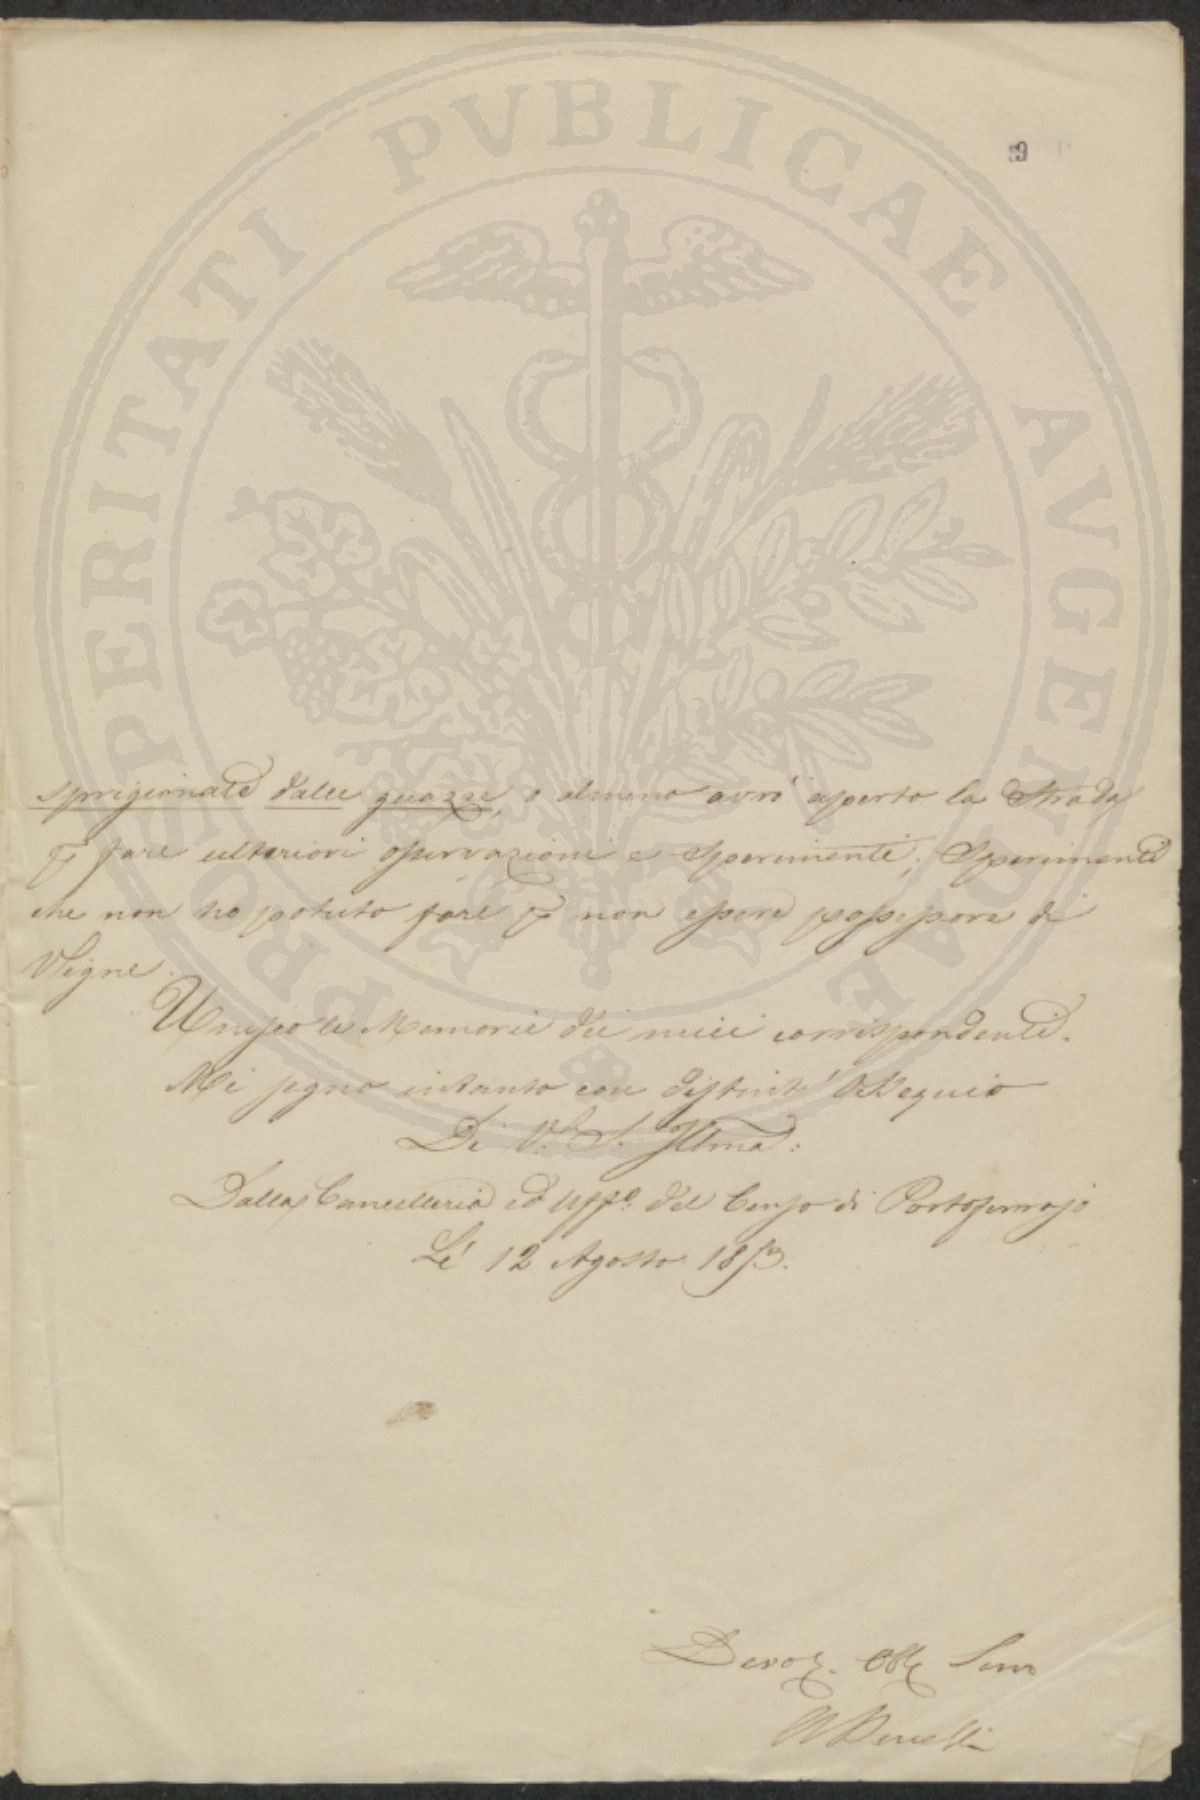 PROSPERITATI PVBLICAE AVGENDAE
59
sprigionate dalle guazze, o almeno avrò aperto la Strada
p fare ulteriori osservazioni e Sperimenti; Sperimenti
che non ho potuto fare p non essere possessore di
Vigne.
Unisco le Memorie dei miei corrispondenti.
Mi segno intanto con distinto Ossequio
Di V. S. Illma:
Dalla Cancelleria ed Uffo. del Censo di Portoferrajo
Li 12 Agosto 1853.
Devoz. Obb Serv